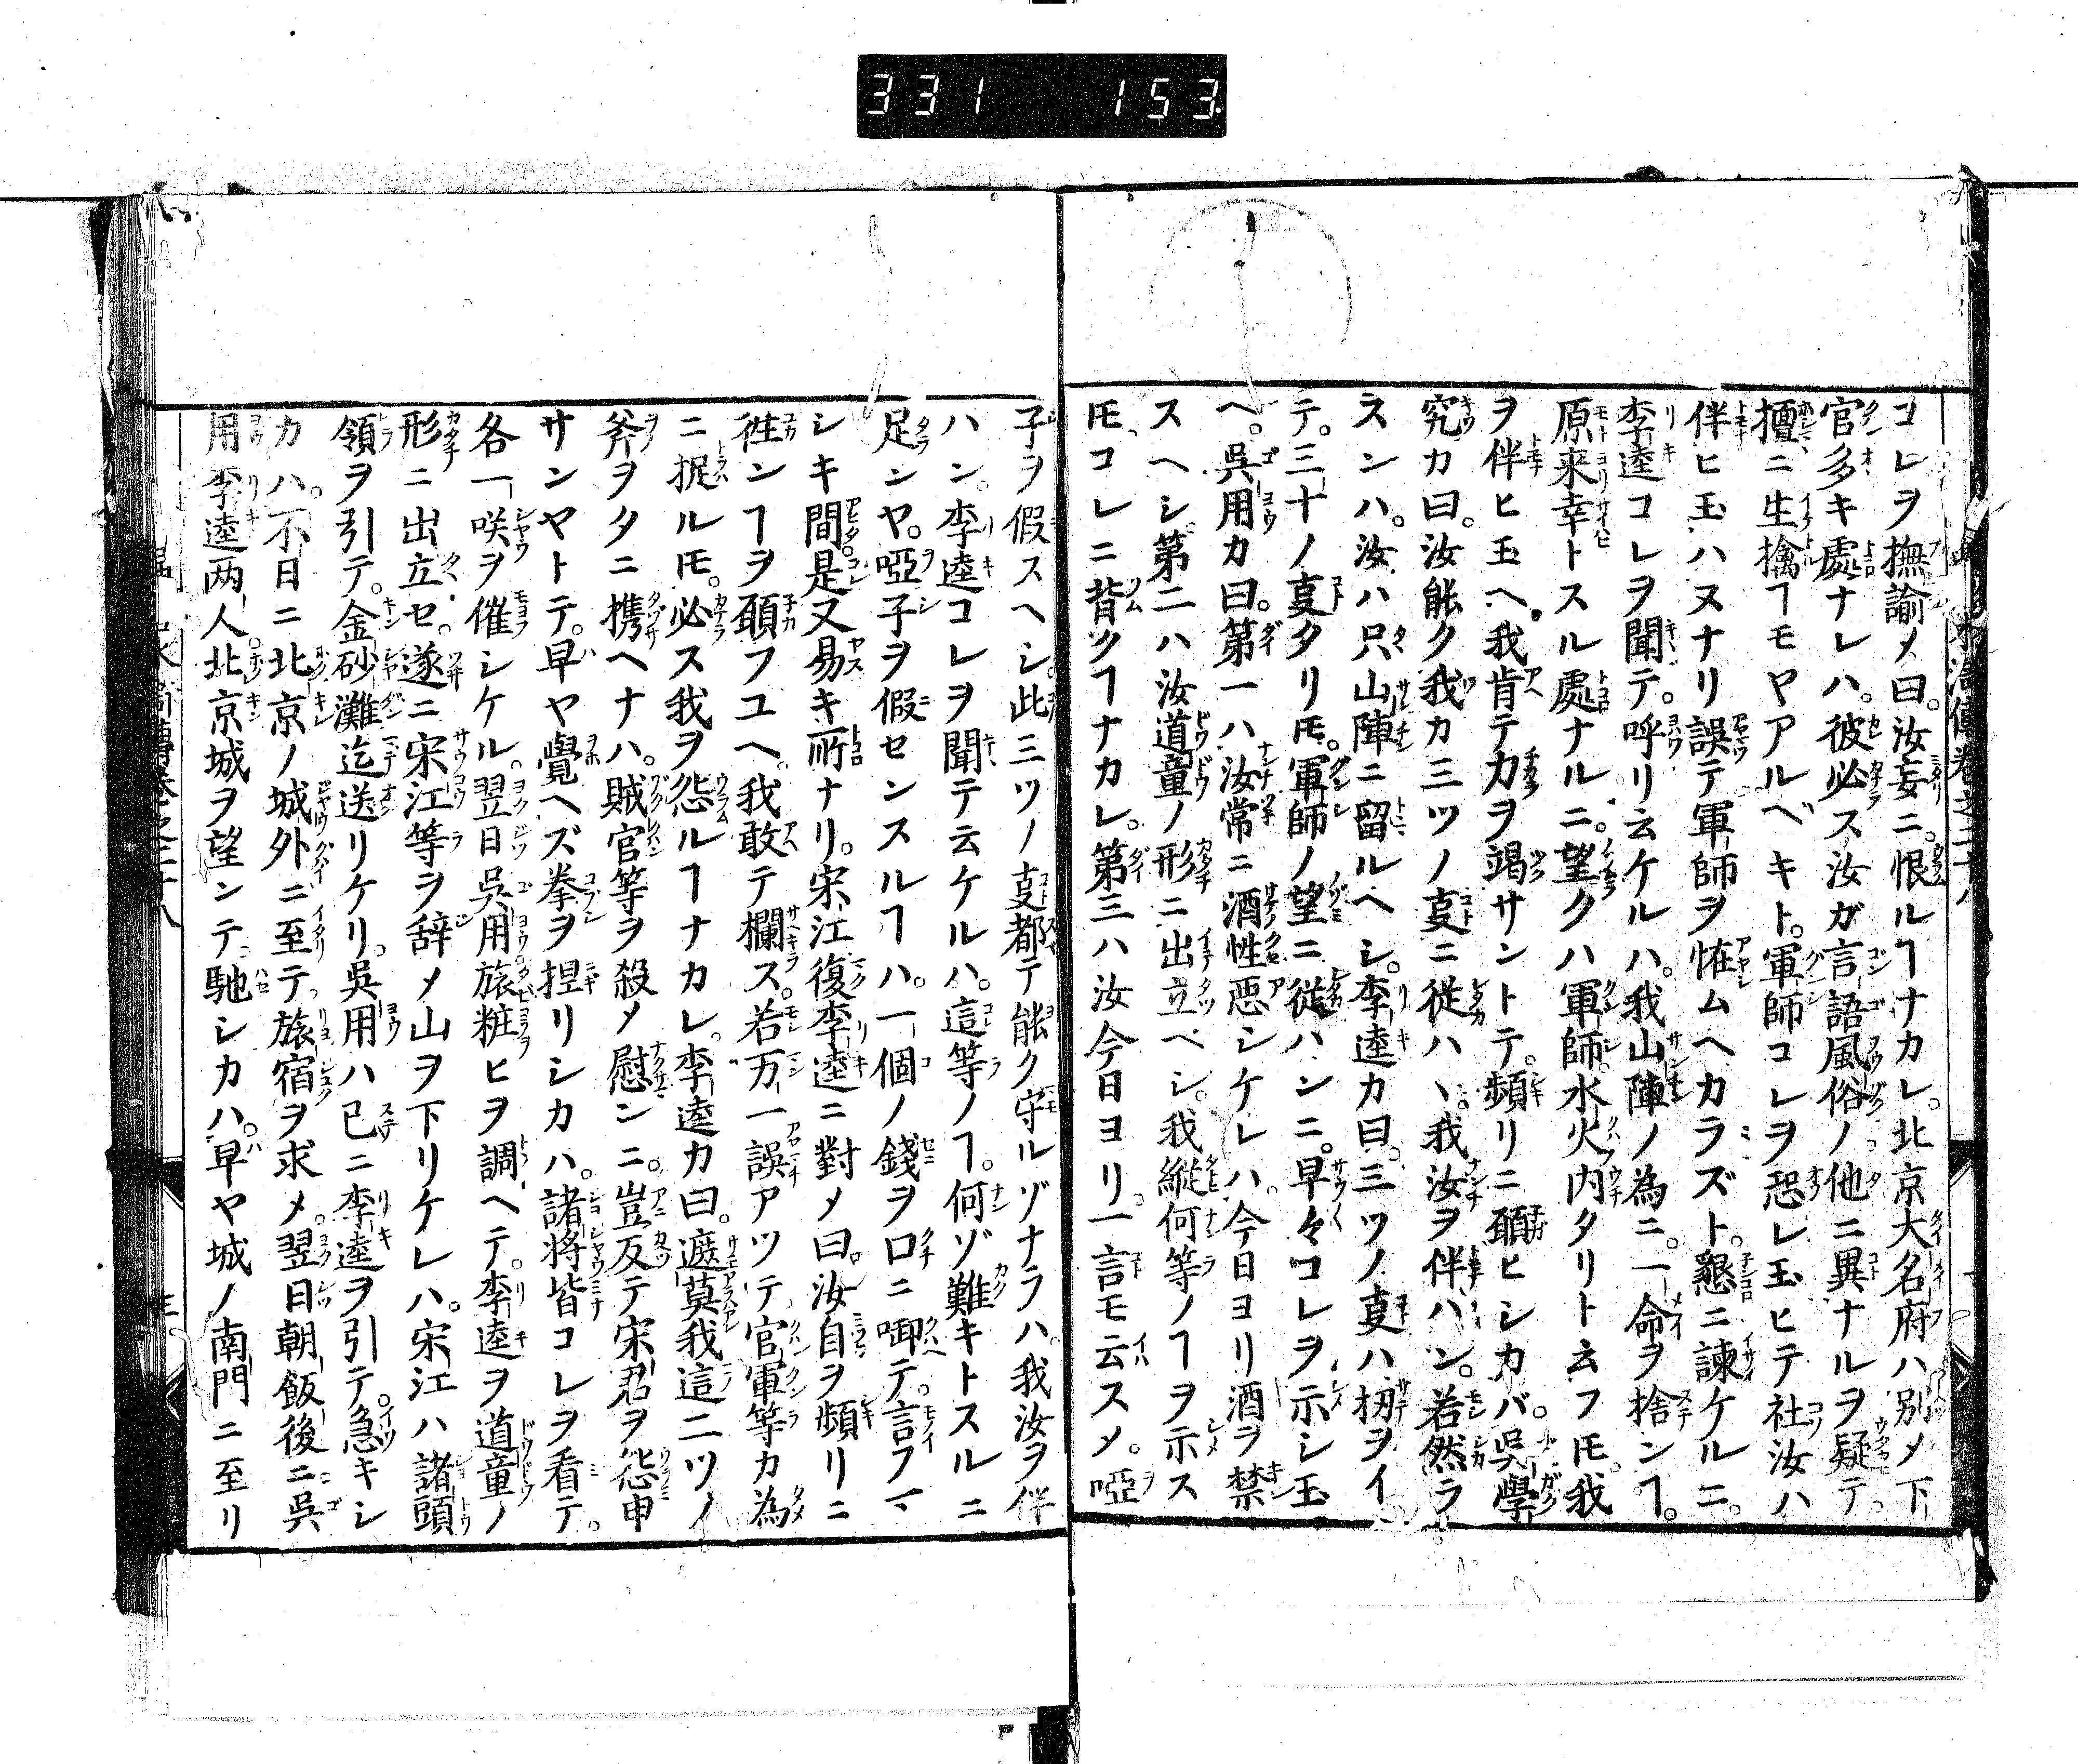 331 153
コレヲ撫諭メ曰。汝妄ニ。恨ルヿナカレ。北京大名府ハ別メ下
官多キ處ナレハ。彼必ス汝ガ言語風俗ノ他ニ異ナルヲ疑テ。
擅ニ生擒ヿモヤアルベキト。軍師コレヲ恐レ玉ヒテ社汝ハ
伴ヒ玉ハヌナリ誤テ軍師ヲ恠ムヘカラズト。懇ニ諌ケルニ。
李逵コレヲ聞テ。呼リ云ケルハ。我山陣ノ為ニ。一命ヲ捨ンヿ。
原来幸トスル處ナルニ。望クハ軍師。水火内タリト云フ𪜈我
ヲ伴ヒ玉ヘ。我肯テ力ヲ竭サントテ。頻リニ頭ヒシカバ。呉學
究カ曰。汝能ク我カ三ツノ叓ニ從ハヽ。我汝ヲ伴ハン。若然ラ
スンハ。汝ハ只山陣ニ留ルヘシ。李逵カ曰。三ツノ叓ハ扨ヲイ
テ。三十ノ叓タリ𪜈。軍師ノ望ニ從ハンニ。早々コレヲ示シ玉
ヘ。呉用カ曰。第一ハ汝常ニ酒性悪シケレハ。今日ヨリ酒ヲ禁
スヘシ。第二ハ汝道童ノ形ニ出立ベシ。我縱何等ノヿヲ示ス
𪜈、コレニ背クヿナカレ。第三ハ汝今日ヨリ。一言モ云スメ。啞
子ヲ假スヘシ。此三ツノ叓都テ能ク守ルゾナラハ。我汝ヲ伴
ハン。李逵コレヲ聞テ云ケルハ。這等ノヿ。何ゾ難キトスルニ
足ンヤ。啞子ヲ假センスルヿハ。一個ノ錢ヲ口ニ啣テ。言フマ
シキ間。是又易キ所ナリ。宋江復李逵ニ對メ曰。汝自ヲ頻リニ
徃ンヿヲ頭フユヘ。我敢テ欄ス。若万一誤アツテ官軍等カ為
ニ捉ル𪜈。必ス我ヲ怨ルヿナカレ。李逵カ曰。遮莫我這二ツノ
斧ヲタニ携ヘナハ。賊官等ヲ殺メ慰ンニ。豈反テ宋君ヲ怨申
サンヤトテ。早ヤ覺ヘズ拳ヲ捏リシカハ。諸將皆コレヲ看テ。
各一咲ヲ催シケル。翌日呉用旅粧ヒヲ調ヘテ。李逵ヲ道童ノ
形ニ出立セ。遂ニ宋江等ヲ辞メ山ヲ下リケレハ。宋江ハ諸頭
領ヲ引テ。金砂灘迄送リケリ。呉用ハ已ニ李逵ヲ引テ。急キシ
カハ。不日ニ北京ノ城外ニ至テ。旅宿ヲ求メ。翌日朝飯後ニ呉
用李逵両人。北京城ヲ望ンテ馳シカハ。早ヤ城ノ南門ニ至リ